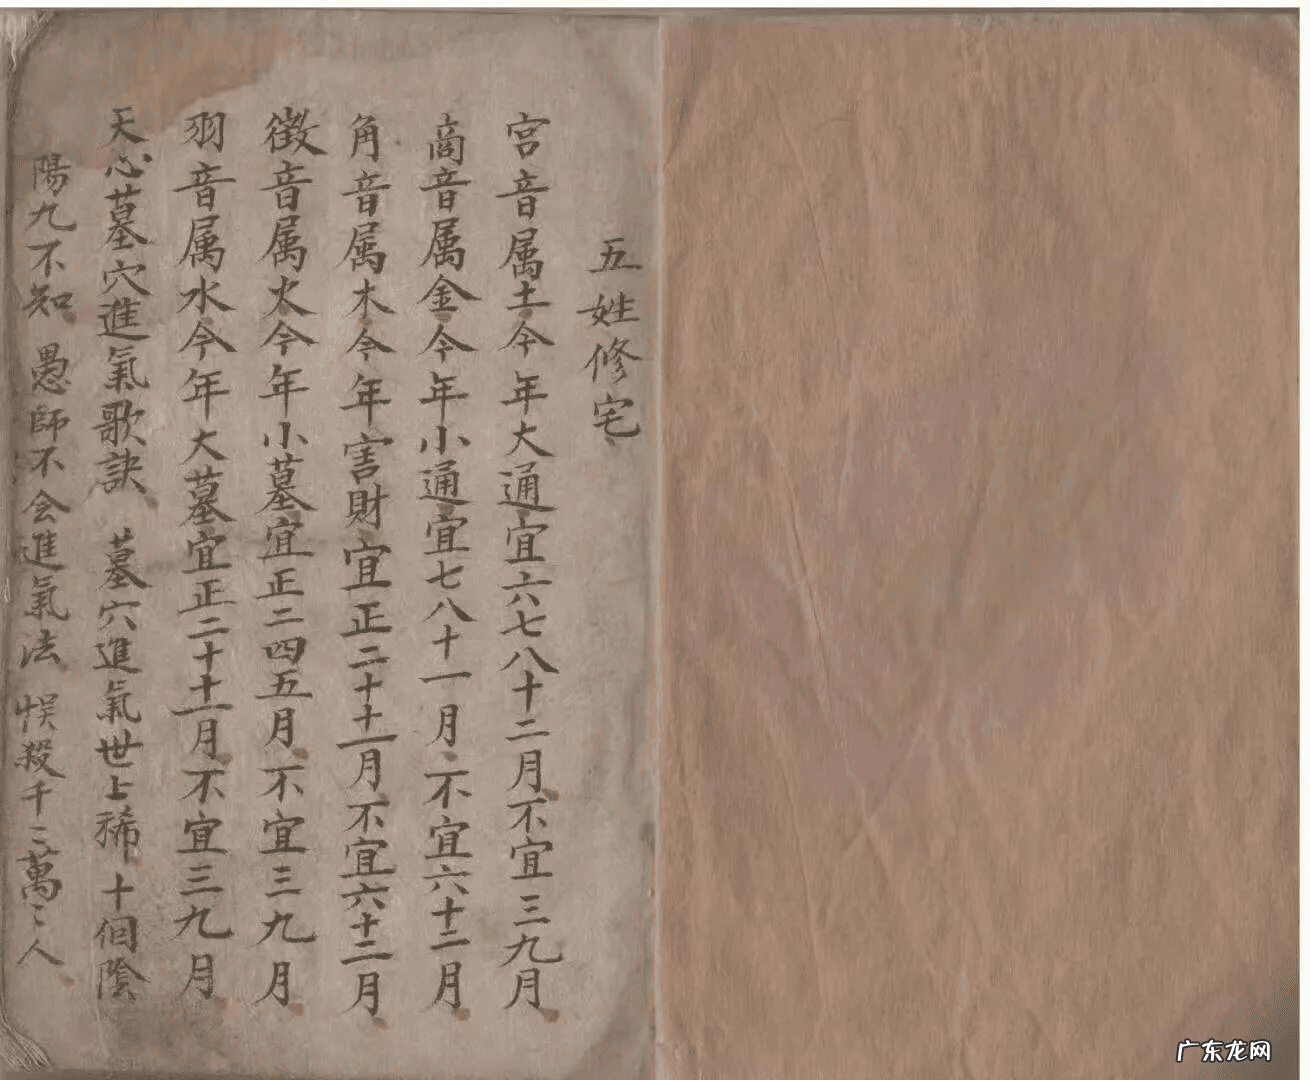 五姓修宅
宫音属土今年大通宜六七八十二月不宜三九月
商音属金今年小通宜七八十一月不宜六十二月
角音属木今年害財宜正二十十一月不宜六十二月
徵音属火今年小墓宜正二四五月不宜三九月
羽音属水今年大墓宜正二十十一月不宜三九月
天心墓穴進氣歌訣 墓穴進氣世上稀十個陰
陽九不知 愚師不会進氣法 悞殺千二萬二人
广东龙网